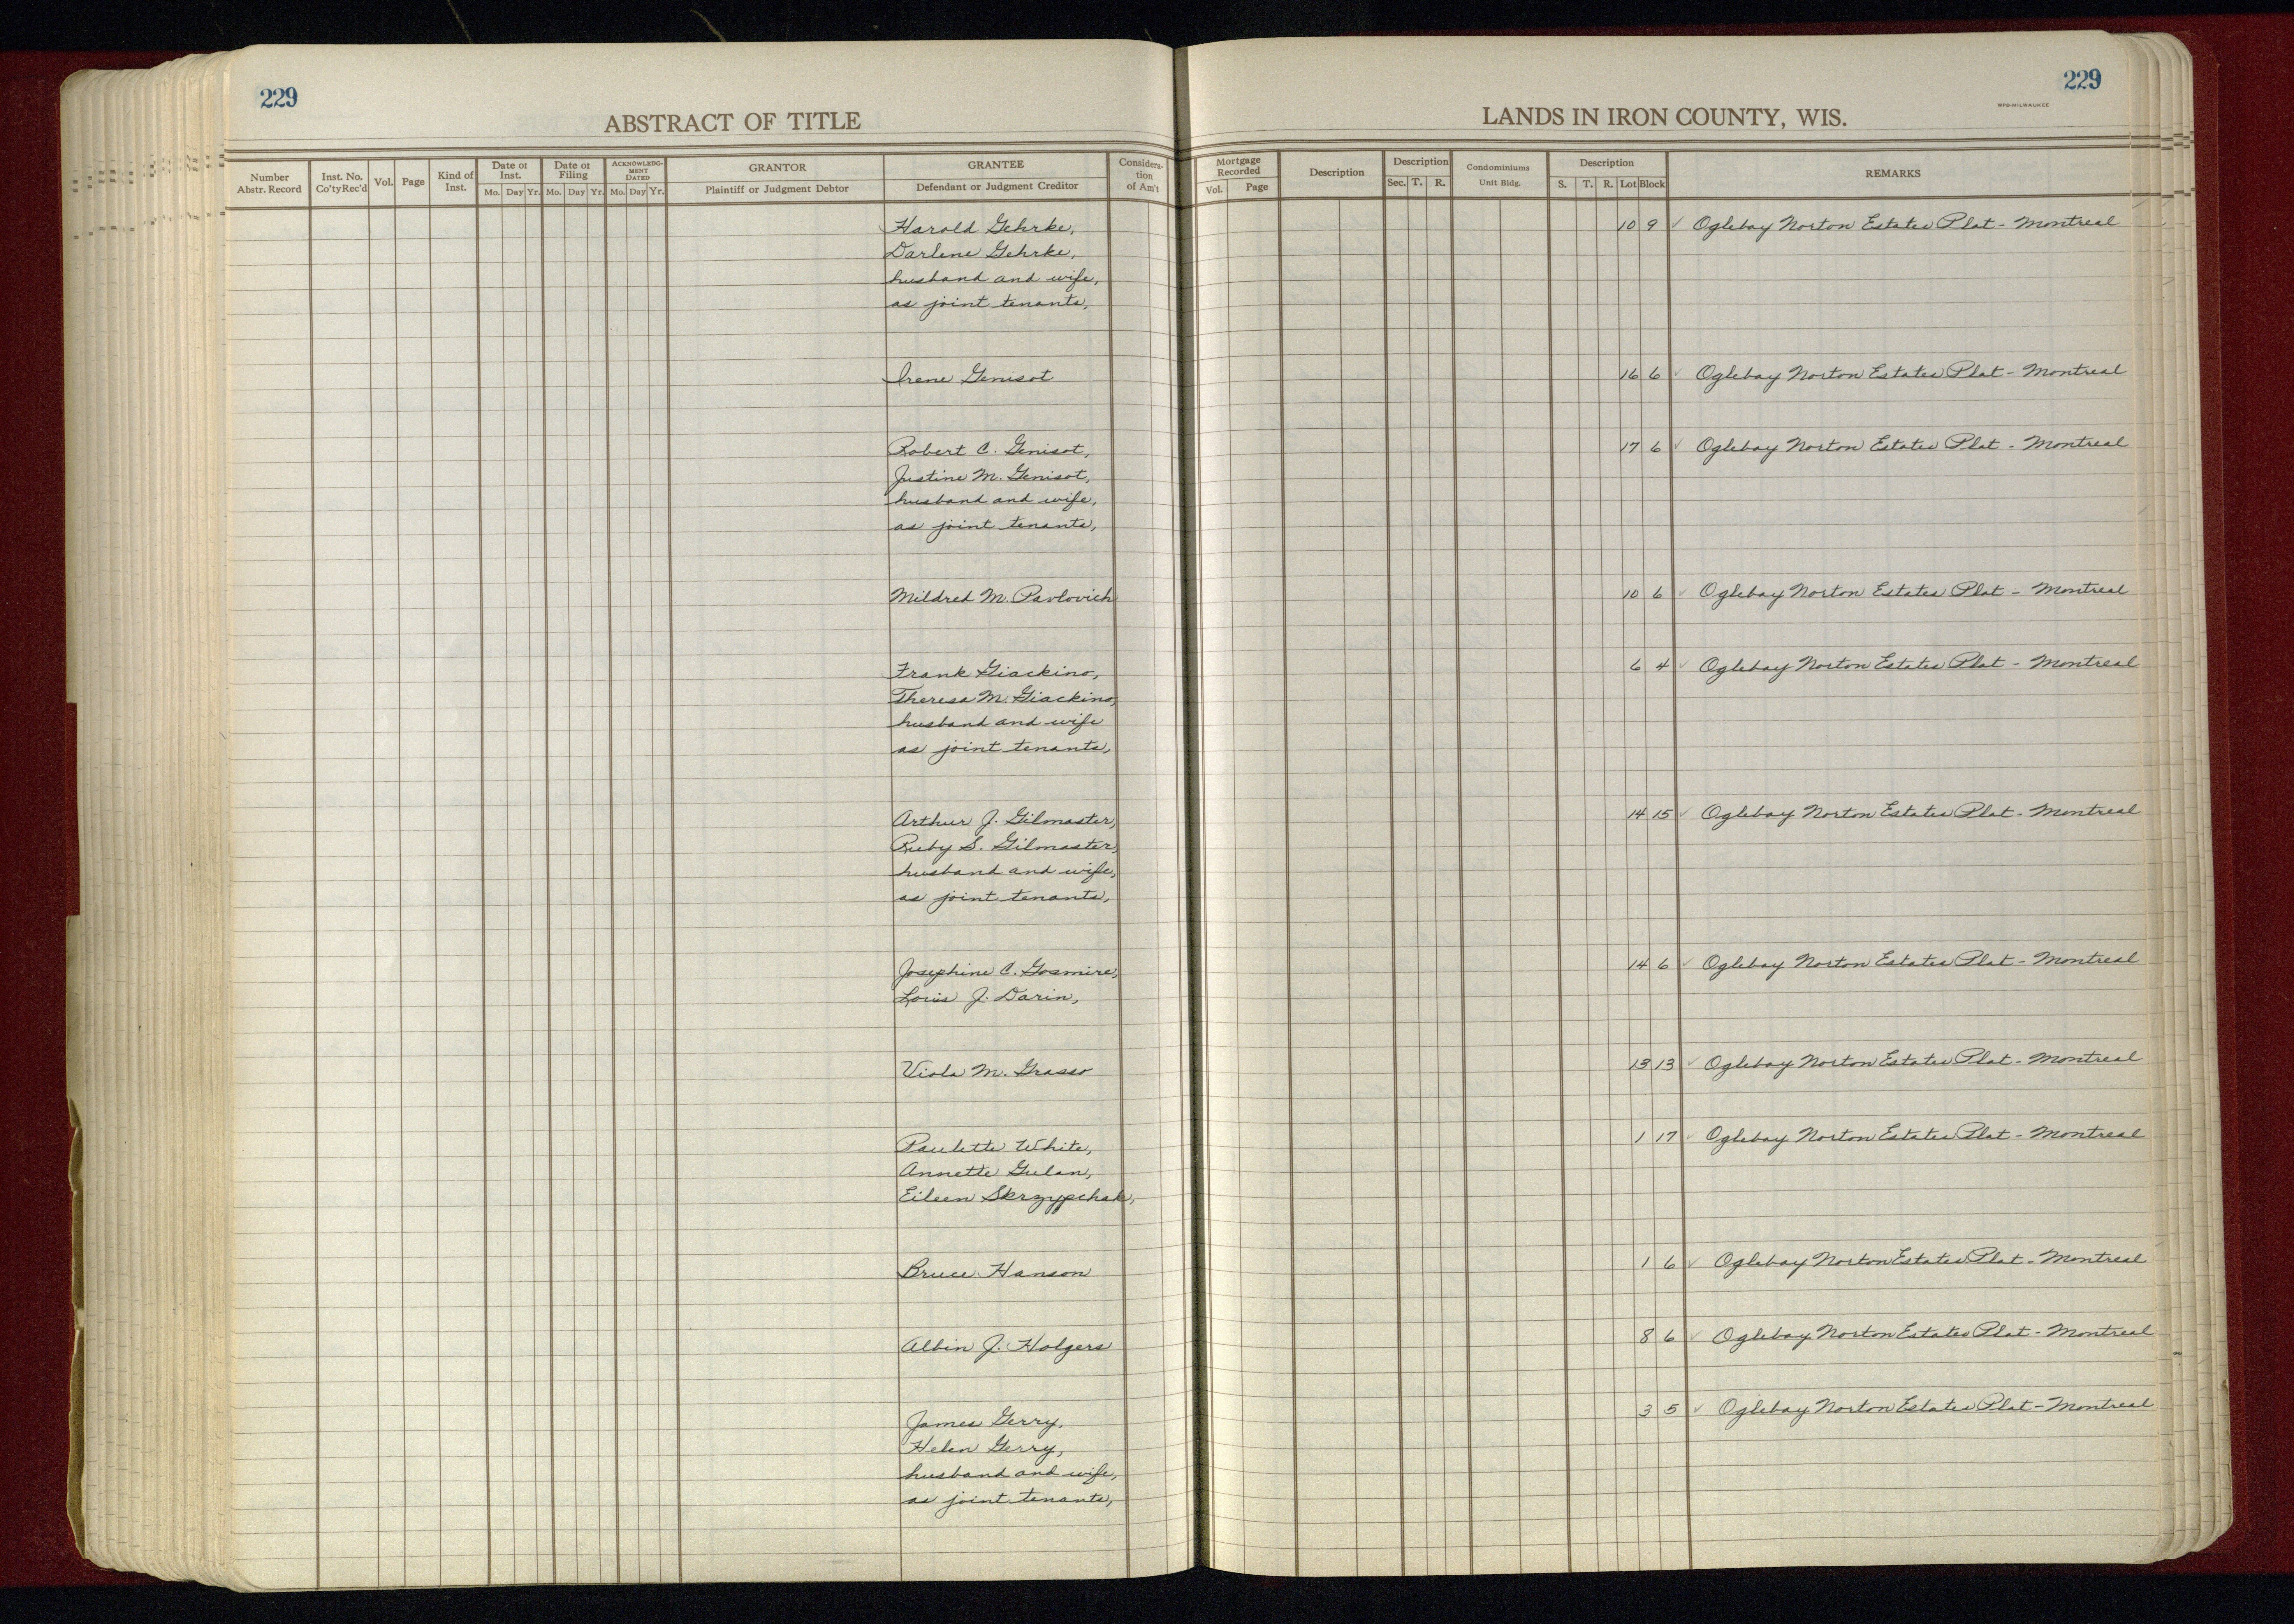 229
ABSTRACT OF TITLE
Number
Abstr. Record
Inst. No.
Co'ty Rec'd
Vol.
Page
Kind of
Inst.
Date of
Inst.
Mo. Day Yr.
Date of
Filing
Mo. Day Yr.
ACKNOWLEDG-
MENT
DATED
Mo. Day Yr.
GRANTOR
Plaintiff or Judgment Debtor
GRANTEE
Defendant or Judgment Creditor
Considera-
tion
of Am't
229
WPB-MILWAUKEE
LANDS IN IRON COUNTY, WIS.
Mortgage
Recorded
Vol. Page
Description
Description
Sec. T. R.
Condominiums
Unit Bldg.
Description
S. T. R. Lot Block
REMARKS
Harold Gehrke, 10 9 ✓ Oglebay Norton Estates Plat - Montreal
Darlene Gehrke,
husband and wife,
as joint tenants,
Irene Genisot 16 6 ✓ Oglebay Norton Estates Plat - Montreal
Robert C. Genisot, 17 6 ✓ Oglebay Norton Estates Plat - Montreal
Justine M. Genisot,
husband and wife,
as joint tenants,
Mildred M. Pavlovich 10 6 ✓ Oglebay Norton Estates Plat - Montreal
Frank Giackino, 6 4 ✓ Oglebay Norton Estates Plat - Montreal
Theresa M. Giackino,
husband and wife
as joint tenants,
Arthur J. Gilmaster, 14 15 ✓ Oglebay Norton Estates Plat - Montreal
Ruby S. Gilmaster,
husband and wife,
as joint tenants,
Josephine C. Gosmire, 14 6 ✓ Oglebay Norton Estates Plat - Montreal
Louis J. Darin,
Viola M. Grasso 13 13 ✓ Oglebay Norton Estates Plat - Montreal
Paulette White, 1 17 ✓ Oglebay Norton Estates Plat - Montreal
Annette Gulan,
Eileen Skrzypchak,
Bruce Hanson 1 6 ✓ Oglebay Norton Estates Plat - Montreal
Albin J. Holgers 8 6 ✓ Oglebay Norton Estates Plat - Montreal
James Gerry, 3 5 ✓ Oglebay Norton Estates Plat - Montreal
Helen Gerry,
husband and wife,
as joint tenants,